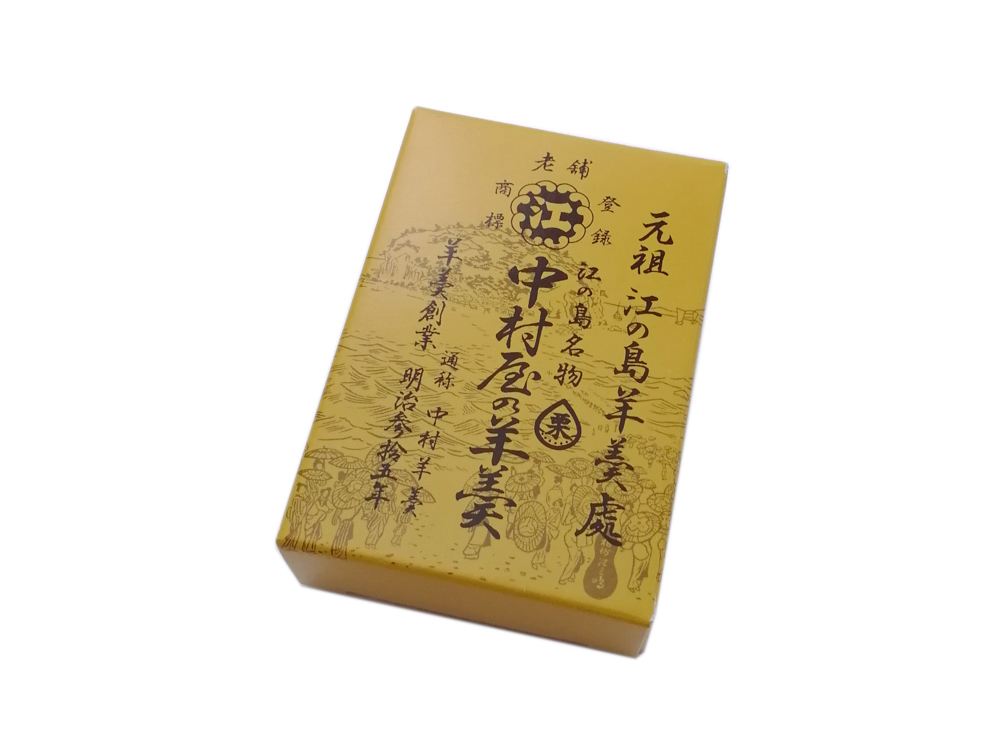 老舗
商標
登録
江
元祖 江の島羊羹處
江の島名物
栗
中村屋の羊羹
通称 中村羊羹
羊羹創業 明治参拾五年